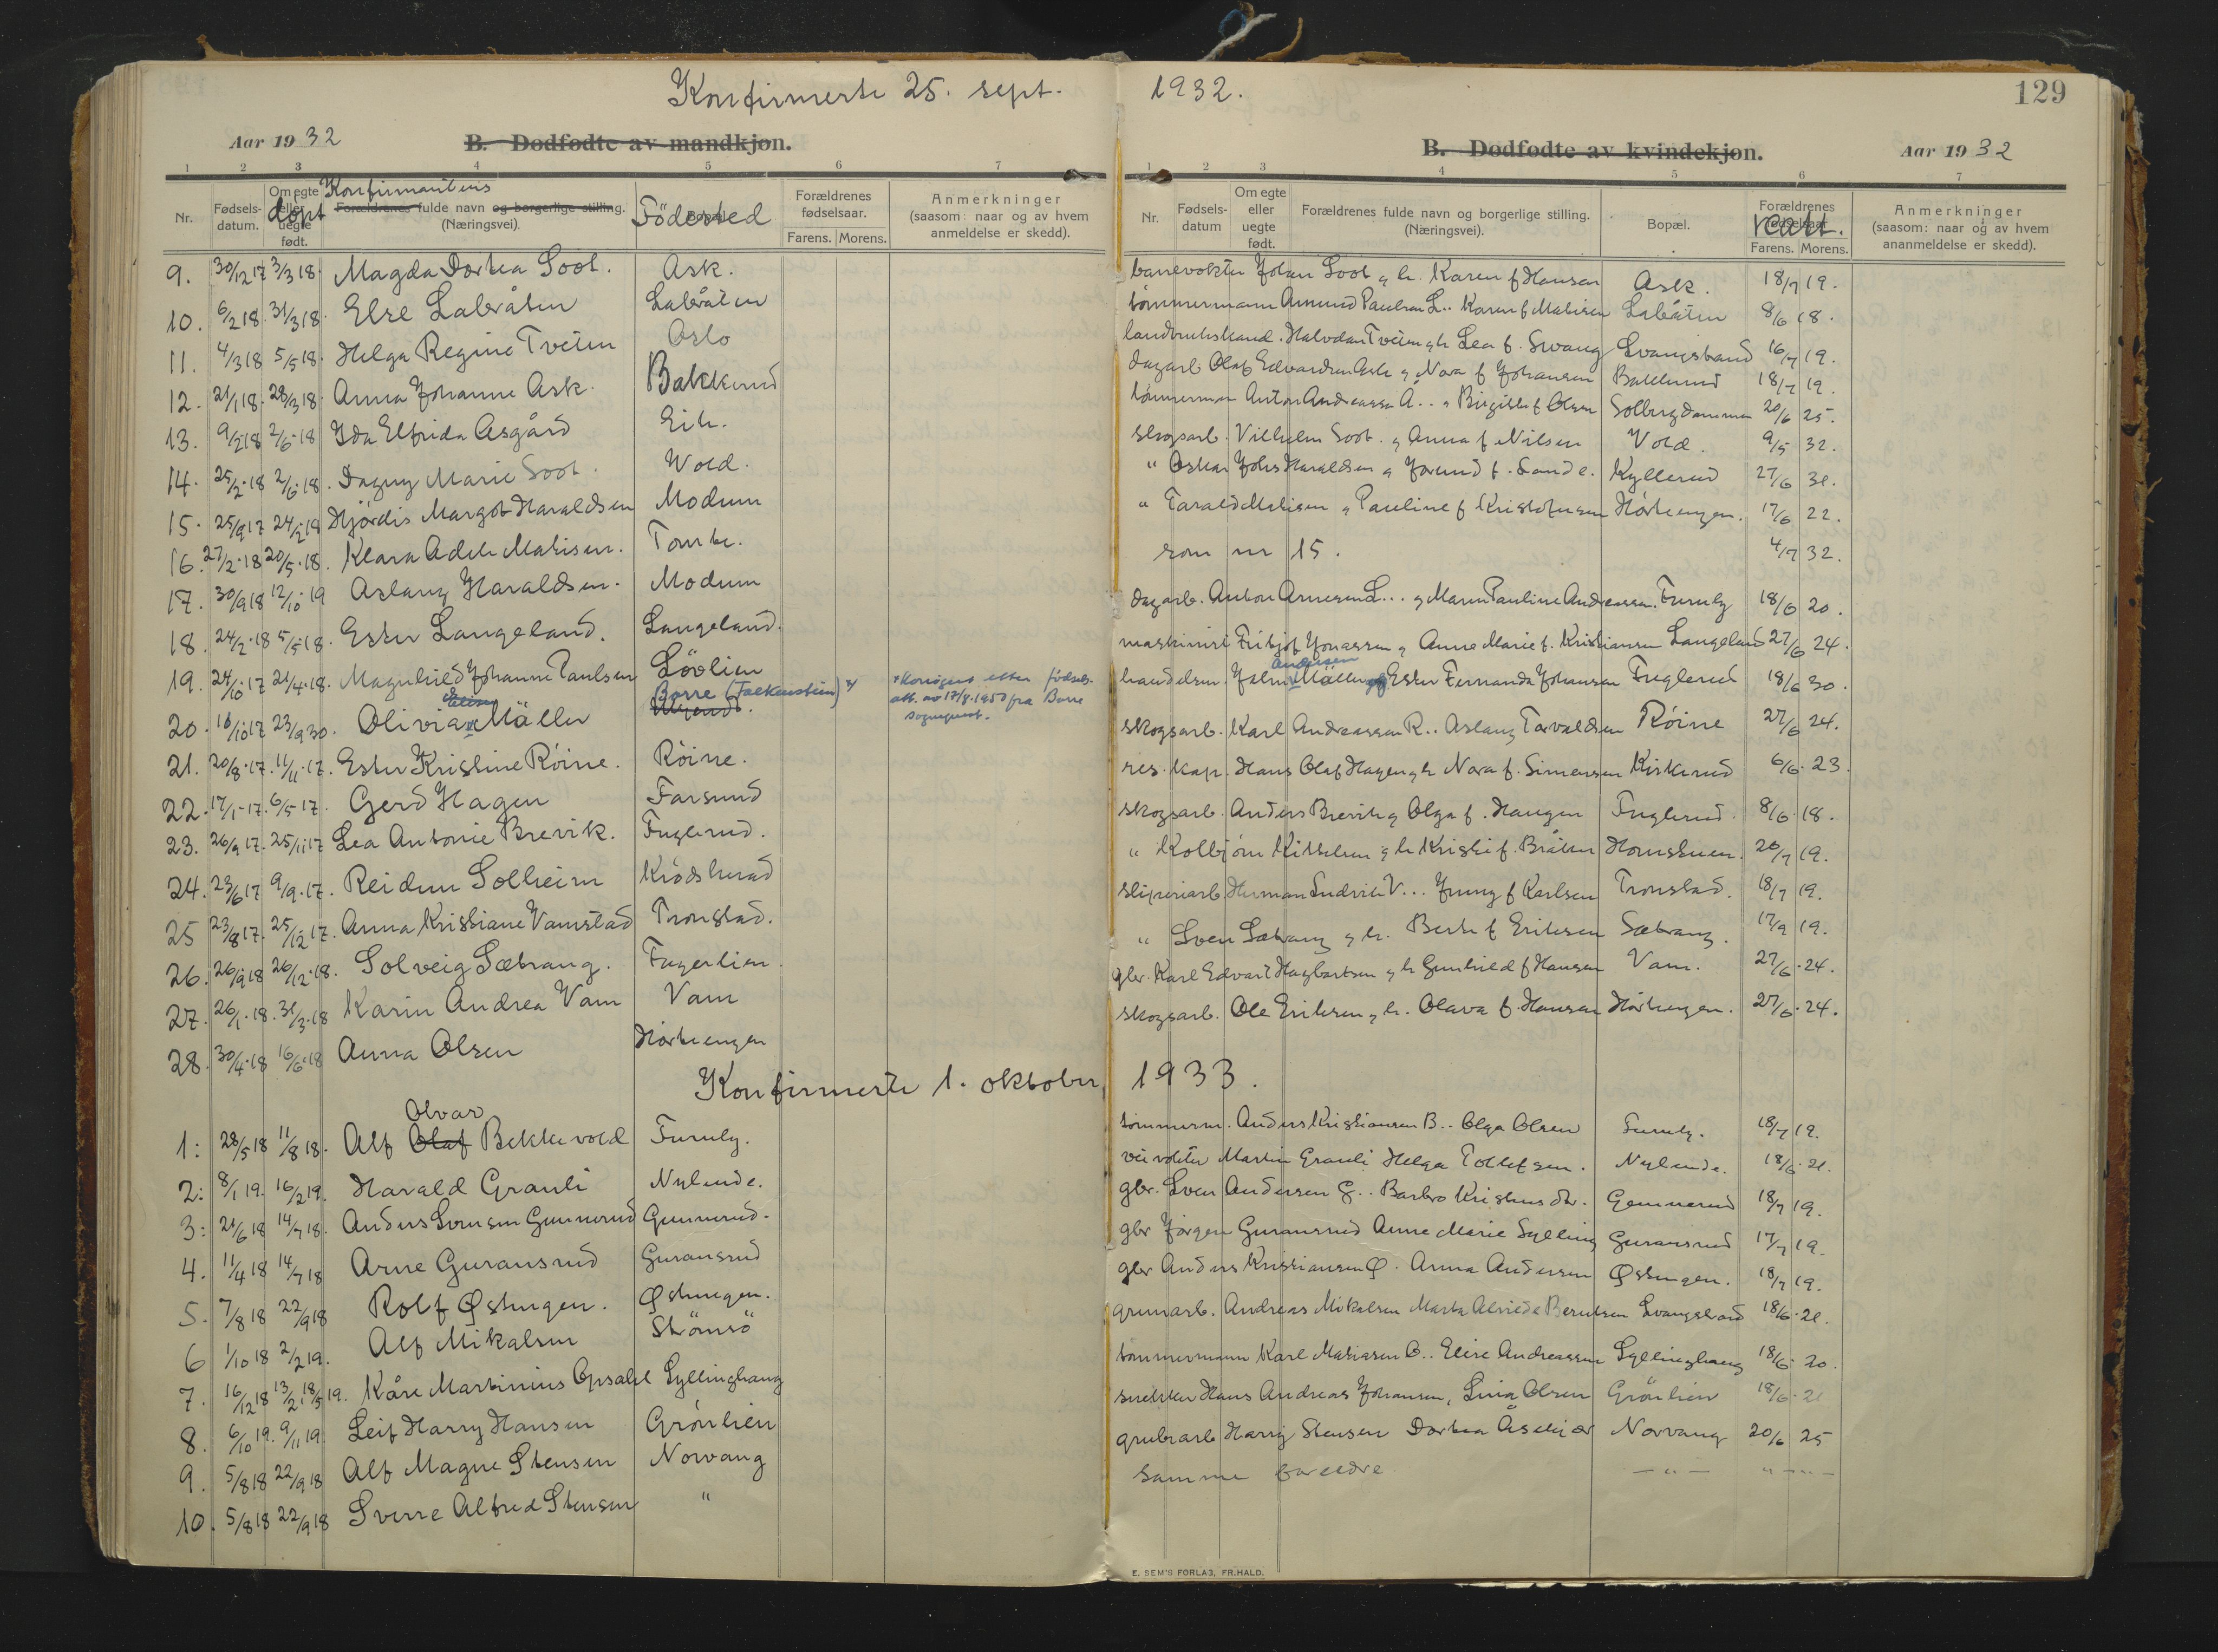 Konfirmerte 25. sept. 1932.
129
Aar 1932
B. Dødfødte av mandkjøn.
B. Dødfødte av kvindekjøn.
Aar 1932
1 2 3 4 5 6 7
Nr. Fødselsdatum. Om egte eller uegte født. døpt Konfirmantens Forældrenes fulde navn og borgerlige stilling. (Næringsvei). Födested Forældrenes fødselsaar. Farens. Morens. Anmerkninger (saasom: naar og av hvem anmeldelse er skedd).
9. 30/12 17 3/3 18. Magda Dortea Soot. Ask.
10. 6/2 18. 31/3 18. Else Labråten Labråten
11. 4/3 18 5/5 18. Helga Regine Tveiten Oslo
12. 21/1 18. 28/3 18. Anna Johanne Ask. Bakkerud
13. 9/2 18 2/6 18 Ida Elfrida Asgård Eik.
14. 25/2 18 2/6 18. Dagny Marie Soot. Wold.
15. 25/9 17 24/2 18 Hjördis Margot Haraldsen Modum
16. 27/2 18 20/5 18. Klara Adele Matisen. Tomte.
17. 30/9 18 12/10 19 Aslaug Haraldsen. Modum
18. 24/2 18 5/5 18. Ester Langeland. Langeland.
19. 24/10 17 21/4 18. Magnhild Johanne Paulsen Lövlien
20. 16/10 17 23/9 30. Olivia Elise Mäller Borre (Falkensten) x)
x Korrigert etter födsels-
att. av 17/8. 1950 fra Borre
sogneprest.
21. 20/8 17. 11/11 17. Ester Kristine Röine. Röine.
22. 17/1 17. 6/5 17. Gerd Hagen Farsund
23. 26/9 17. 25/11 17 Lea Antonie Brevik. Fuglerud.
24. 23/6 17 9/9 17. Reidun Solheim Krödsherad
25 23/8 17. 25/12 17. Anna Kristiane Vamstad Tronstad.
26. 26/9 18 26/12 18. Solveig Sætrang. Fagerlien
27. 26/1 18. 31/3 18 Karin Andrea Vam Vam
28. 30/4 18 16/6 18 Anna Olsen Hörtengen
Konfirmerte 1. oktober, 1933.
1: 28/5 18 11/8 18. Alf Olaf Olvar Bekkevold Furuly.
2: 8/1 19. 16/2 19. Harald Granli Nylende.
3: 21/6 18 14/7 18. Anders Svensen Gunnerud Gunnerud.
4. 11/4 18 14/7 18 Arne Guransrud Guransrud
5. 7/8 18 22/9 18 Rolf Østengen. Østengen.
6 1/10 18 2/2 19. Alf Mikalsen Strömsö
7. 16/12 18 13/2, 18/5 19. Kåre Martinius Opsahl Syllinghaug
8. 6/10 19. 9/11 19. Leif Harry Hansen Grönlien
9. 5/8 18 22/9 18 Alf Magne Stensen Norvang
10. 5/8 18 22/9 18 Sverre Alfred Stensen "
1 2 3 4 5 6 7
Nr. Fødselsdatum Om egte eller uegte født. Forældrenes fulde navn og borgerlige stilling. (Næringsvei). Bopæl. Forældrenes fødselsaar. Farens. Morens. Anmerkninger (saasom: naar og av hvem ananmeldelse er skedd).
banevokter Johan Soot og h. Karen f Hansen Ask. 18/7 19.
tömmermann Amund Paulsen L.. Karen f Matisen Labråten 8/6 18.
Halvdan Tveiten og h Lea f. Svang Svangstrand 16/7 19.
dagarb. Olaf Edvardsen Ask og Nora f Johansen Bakkerud 18/7 19.
tömmerman Anton Andreassen Å.. " Birgitte f Olsen 20/6 25.
skogsarb. Vilhelm Soot. og Anna f Nilsen Vold. 9/5 32.
" Oskar Johs Haraldsen og Jorund f. Sande. Kyllerud 27/6 31.
" Tarald Matisen og Pauline f Kristofersen Hörtengen. 17/6 22.
som nr 15. 4/7 32.
dagarb. Anton Arnesen L... og Maren Pauline Andreassen. Furuly 18/6 20.
maskinist Fritjof Jonassen og Anne Marie f. Kristiansen Langeland 27/6 24.
handelsm. Andersen Mäller og Ester Fernanda Johansen Fuglerud 18/6 30.
skogsarb. Karl Andreassen R.. Aslaug Torvaldsen Röine 27/6 24.
res. kap. Hans Olaf Hagen og h Nora f. Simensen Kirkerud 6/6 23.
skogsarb. Anders Brevik og Olga f. Haugen Fuglerud. 8/6 18.
" Kolbjörn Kittelsen og h Kristi f. Bråten 20/7 19.
sliperiarb Herman Ludvik V... Jenny f Karlsen Tronstad. 18/7 19.
" Sven Sætrang og h. Berte f Eriksen Sætrang. 17/9 19.
gbr. Karl Edvart Hagbartsen og h Gunhild f Hansen Vam. 27/6 24.
skogsarb. Ole Eriksen og h. Olava f. Hansen Hörtengen. 27/6 24.
tömmerm. Anders Kristiansen B.. Olga Olsen Furuly. 18/7 19.
veivokter Martin Granli Helga Tollefsen. Nylende. 18/6 21.
gbr. Sven Andersen G.. Barbro Kristensdtr. Gunnerud 18/7 19.
gbr Jörgen Guransrud Anne Marie Sylling Guransrud 17/7 19.
gbr Anders Kristiansen Ø. Anna Andersen Østengen. 18/7 19.
gruvarb. Andreas Mikalsen Marta Alvilde Berntsen Svangstrand 18/6 21.
tömmermann Karl Matiasen O.. Elise Andreassen Syllinghaug 18/6 20.
snekker Hans Andreas Johansen, Lina Olsen Grönlien 18/6 21
grubearb Harry Stensen Dortea Åskjær Norvang 20/6 25
samme foreldre — " — " — " —
E. SEM'S FORLAG, FR.HALD.